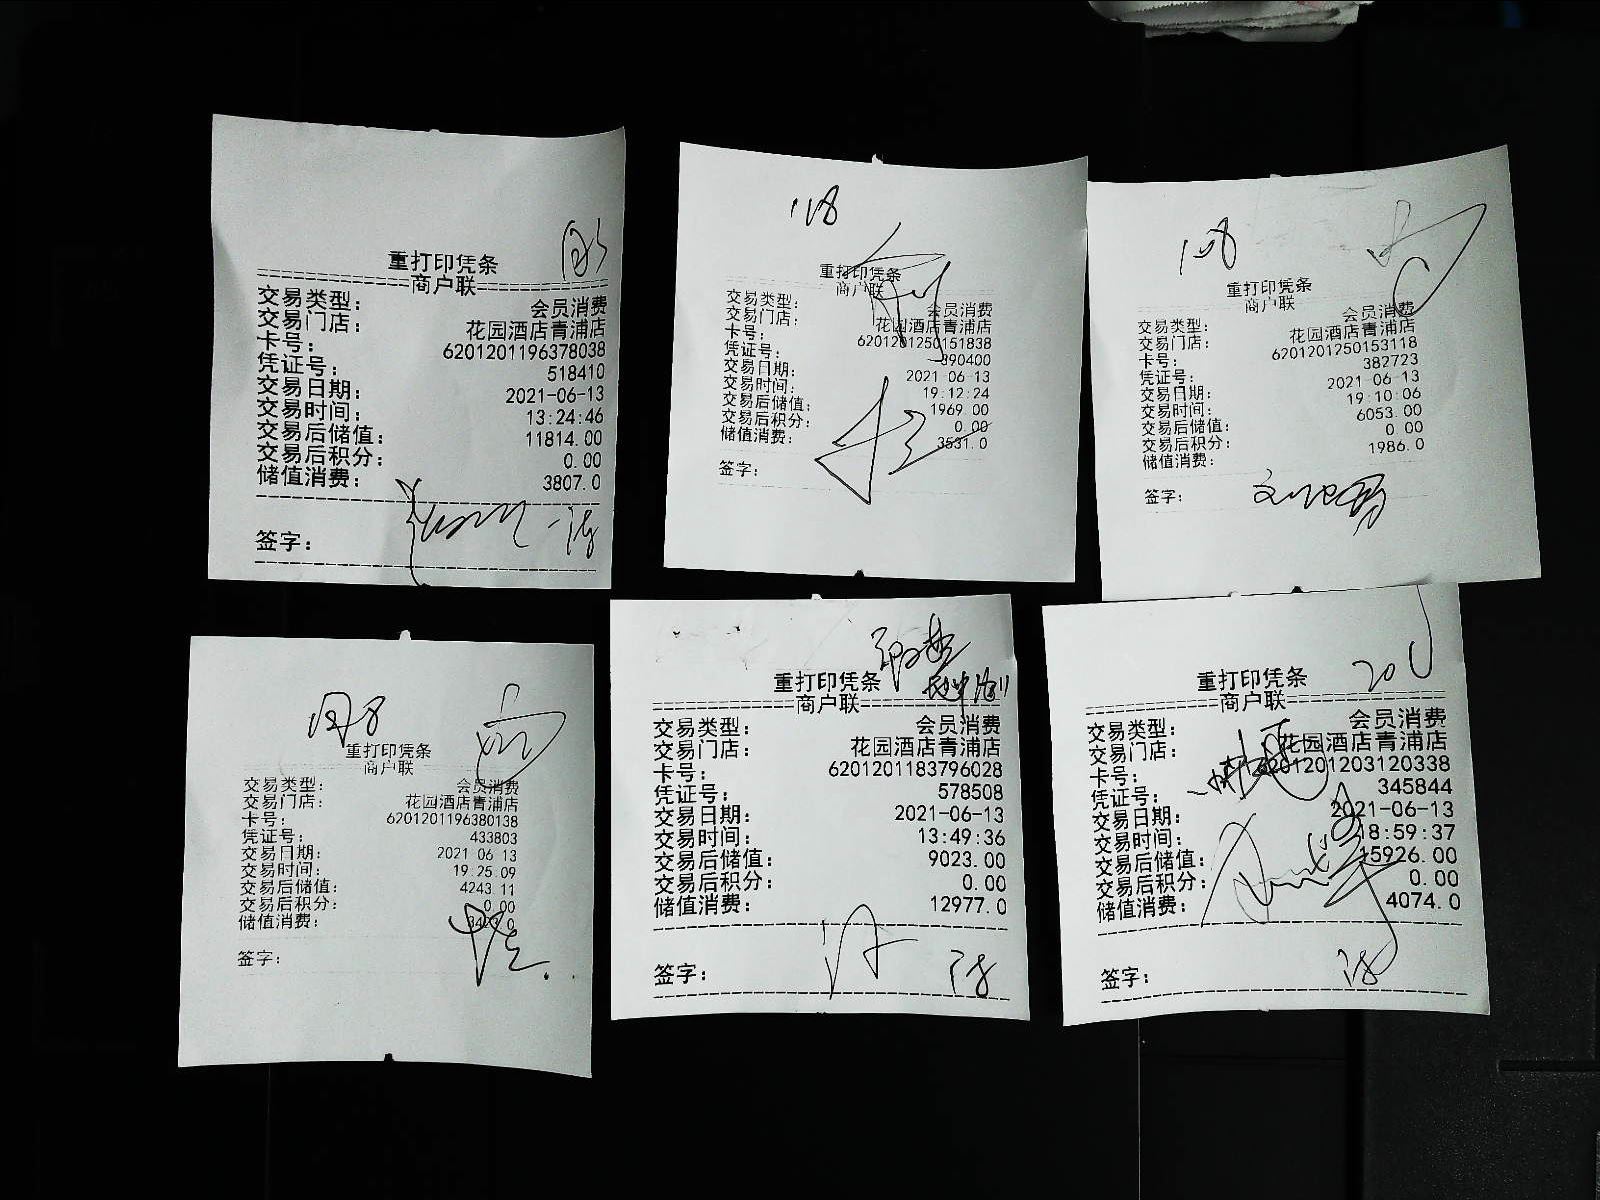 重打印凭条
商户联
交易类型: 会员消费
交易门店: 花园酒店青浦店
卡号: 6201201196378038
凭证号: 518410
交易日期: 2021-06-13
交易时间: 13:24:46
交易后储值: 11814.00
交易后积分: 0.00
储值消费: 3807.0
签字:
118
重打印凭条
商户联
交易类型: 会员消费
交易门店: 花园酒店青浦店
卡号: 6201201250151838
凭证号: 390400
交易日期: 2021-06-13
交易时间: 19:12:24
交易后储值: 1969.00
交易后积分: 0.00
储值消费: 3531.0
签字:
108
重打印凭条
商户联
交易类型: 会员消费
交易门店: 花园酒店青浦店
卡号: 6201201250153118
凭证号: 382723
交易日期: 2021-06-13
交易时间: 19:10:06
交易后储值: 6053.00
交易后积分: 0.00
储值消费: 1986.0
签字:
重打印凭条
商户联
交易类型: 会员消费
交易门店: 花园酒店青浦店
卡号: 6201201196380138
凭证号: 433803
交易日期: 2021-06-13
交易时间: 19:25:09
交易后储值: 4243.11
交易后积分: 0.00
储值消费:
签字:
重打印凭条
商户联
交易类型: 会员消费
交易门店: 花园酒店青浦店
卡号: 6201201183796028
凭证号: 578508
交易日期: 2021-06-13
交易时间: 13:49:36
交易后储值: 9023.00
交易后积分: 0.00
储值消费: 12977.0
签字:
重打印凭条
商户联
交易类型: 会员消费
交易门店: 花园酒店青浦店
卡号: 6201201203120338
凭证号: 345844
交易日期: 2021-06-13
交易时间: 18:59:37
交易后储值: 15926.00
交易后积分: 0.00
储值消费: 4074.0
签字: